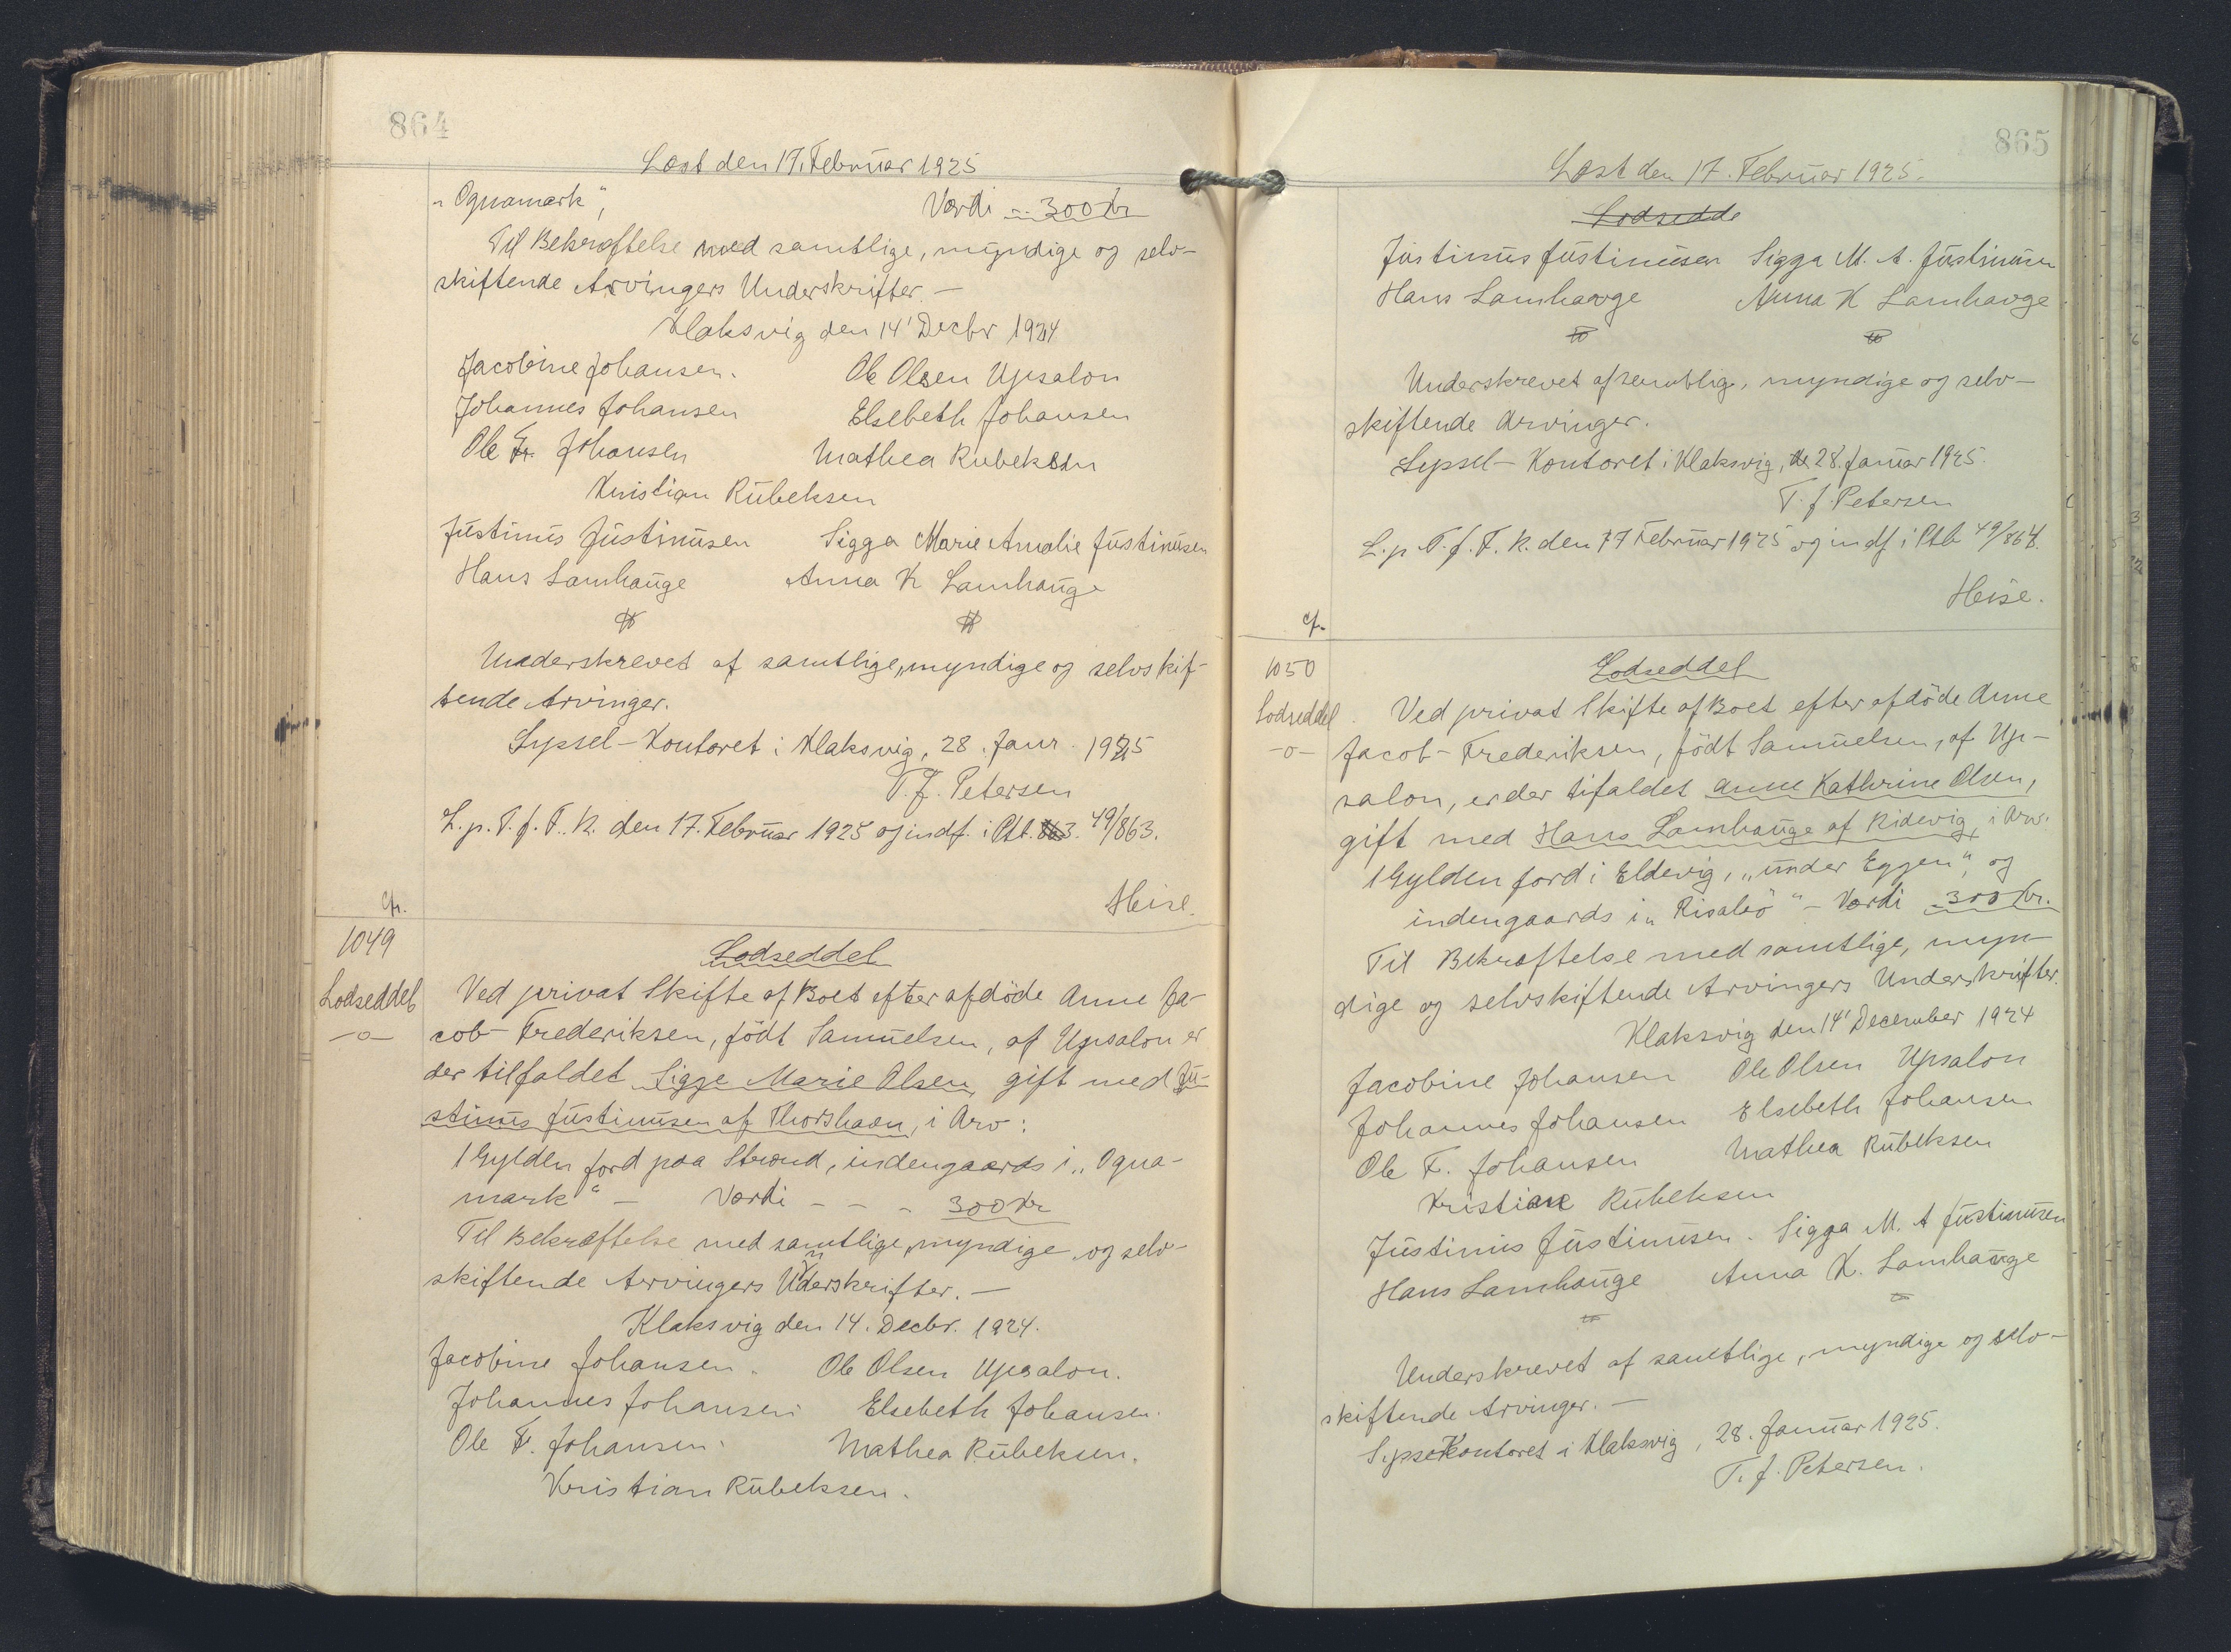 864
Læst den 17. Februar 1925
"Ognamark", Værdi -- 300 Kr
Til Bekræftelse med samtlige, myndige og selv-
skiftende Arvingers Underskrifter. —
Klaksvig den 14' Decbr 1924
Jacobine Johansen. Ole Olsen Upsalon
Johannes Johansen Elsebeth Johansen
Ole Fr. Johansen Mathea Rubeksen
Kristian Rubeksen
Justinus Justinusen Sigga Marie Amalie Justinusen
Hans Lamhauge Anna K Lamhauge
Underskrevet af samtlige, myndige og selvskif-
tende Arvinger.
Syssel-Kontoret i Klaksvig, 28. Janr. 1925
T. J. Petersen
L. p. T. f. F. K. den 17. Februar 1925 og indf. i Ptb. 49/863.
Heise.
Cfr.
1049
Lodseddel
-o-
Lodseddel
Ved privat Skifte af Boet efter afdöde Anne Ja-
cob-Frederiksen, födt Samuelsen, af Upsalon er
der tilfaldet Sigge Marie Olsen, gift med Ju-
stinus Justinusen af Thorshavn, i Arv:
1 Gylden Jord paa Strond, indengaards i "Ogna-
mark" — Værdi - - - 300 Kr
Til Bekræftelse med samtlige, myndige og selv-
skiftende Arvingers Underskrifter. —
Klaksvig den 14. Decbr. 1924.
Jacobine Johansen. Ole Olsen Upsalon.
Johannes Johansen Elsebeth Johansen.
Ole F. Johansen. Mathea Rubeksen.
Kristian Rubeksen.
865
Læst den 17. Februar 1925.
Lodsedde
Justinus Justinusen Sigga M. A. Justinusen
Hans Lamhauge Anna K Lamhauge
Underskrevet af samtlige, myndige og selv-
skiftende Arvinger.
Syssel-Kontoret i Klaksvig, d. 28. Januar 1925.
T. J. Petersen
L. p. T. f. F. K. den 17 Februar 1925 og indf i Ptb 49/864.
Heise.
Cf.
1050
Lodseddel
-o-
Lodseddel
Ved privat Skifte af Boet efter afdöde Anne
Jacob-Frederiksen, födt Samuelsen, af Up-
salon, er der tifaldet Anne Kathrine Olsen,
gift med Hans Lamhauge af Ridevig, i Arv.
1 Gylden Jord i Eldevig, "under Eggen", og
indengaards i "Risaleö" — Værdi - 300 Kr.
Til Bekræftelse med samtlige, myn-
dige og selvskiftende Arvingers Underskrifter.
Klaksvig den 14' December 1924
Jacobine Johansen Ole Olsen Upsalon
Johannes Johansen Elsebeth Johansen
Ole F. Johansen Mathea Rubeksen
Kristian Rubeksen
Justinus Justinusen. Sigga M. A Justinusen
Hans Lamhauge Anna K. Lamhauge
Underskrevet af samtlige, myndige og selv-
skiftende Arvinger. —
SysselKontoret i Klaksvig, 28. Januar 1925.
T. J. Petersen.